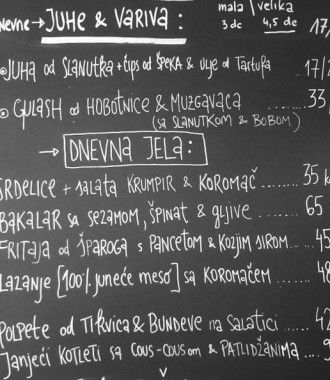 Dnevne → JUHE & VARIVA :
mala | velika
3 dc 4,5 de
17,
JUHA od SLANUTKA + čips od ŠPEKA & ulje od TARTUFA 17/2
GULASH od HOBOTNICE & MUZGAVACA ........ 33/
(SA SLANUTKOM & BOBOM)
→ DNEVNA JELA :
SRDELICE + SALATA KRUMPIR & KOROMAČ ........ 35 k
BAKALAR sa SEZAMOM, ŠPINAT & GLJIVE ........ 65
FRITAJA od ŠPAROGA s PANCETOM & KOZJIM SIROM... 45
LAZANJE [100% juneće meso] sa KOROMAČEM ...... 48
POLPETE od TIKVICA & BUNDEVE na SALATICI ..... 42
JANJEĆI KOTLETI SA COUS-COUSOM & PATLIDŽANIMA ....